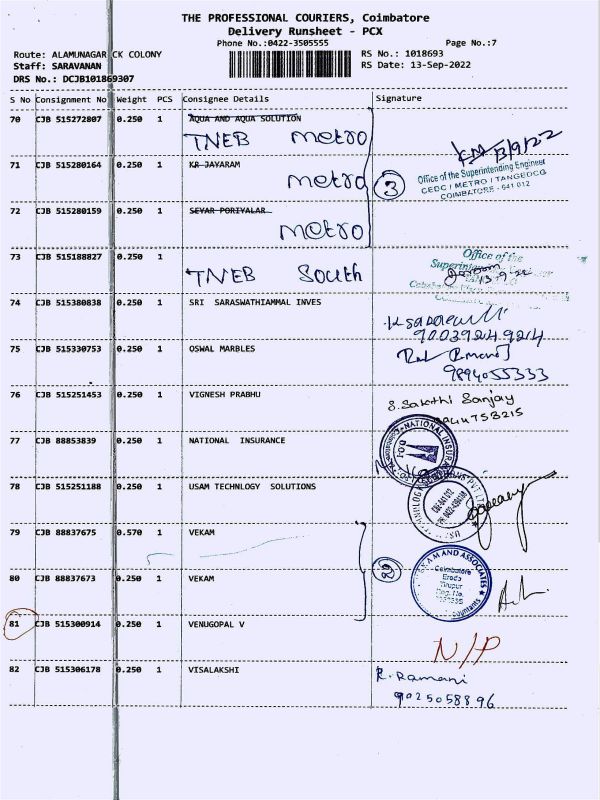 THE PROFESSIONAL COURIERS, Coimbatore
Delivery Runsheet - PCX
Phone No.:0422-3505555 Page No.:7
Route: ALAMUNAGAR CK COLONY RS No.: 1018693
Staff: SARAVANAN RS Date: 13-Sep-2022
DRS No.: DCJB101869307
S No Consignment No Weight PCS Consignee Details Signature
70 CJB 515272807 0.250 1 AQUA AND AQUA SOLUTION
TNEB metro 13/9/22
71 CJB 515280164 0.250 1 KR JAYARAM
metro 3 Office of the Superintending Engineer
CEDC / METRO / TANGEDCO
COIMBATORE - 641 012
72 CJB 515280159 0.250 1 SEVAR PORIYALAR
metro
73 CJB 515188827 0.250 1 Office of the
TNEB South 13-9-22
74 CJB 515380838 0.250 1 SRI SARASWATHIAMMAL INVES
9003924924
75 CJB 515330753 0.250 1 OSWAL MARBLES
9894055333
76 CJB 515251453 0.250 1 VIGNESH PRABHU S. Sakthi Sanjay
77 CJB 88853839 0.250 1 NATIONAL INSURANCE NATIONAL INSURANCE
78 CJB 515251188 0.250 1 USAM TECHNLOGY SOLUTIONS
79 CJB 88837675 0.570 1 VEKAM
80 CJB 88837673 0.250 1 VEKAM AND ASSOCIATES
Coimbatore
Erode
Tirupur
Reg. No.
81 CJB 515300914 0.250 1 VENUGOPAL V N/P
82 CJB 515306178 0.250 1 VISALAKSHI R. Ramani
9025058896